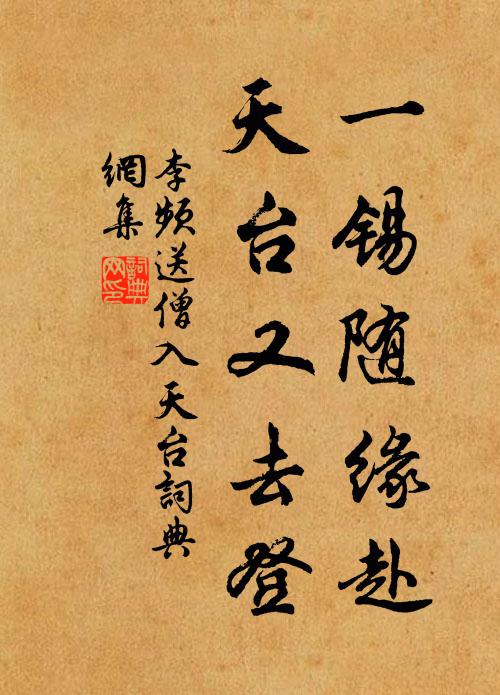 一锡随缘赴
天台又去登
李频送僧入天台詞典
網集
詞典
网印